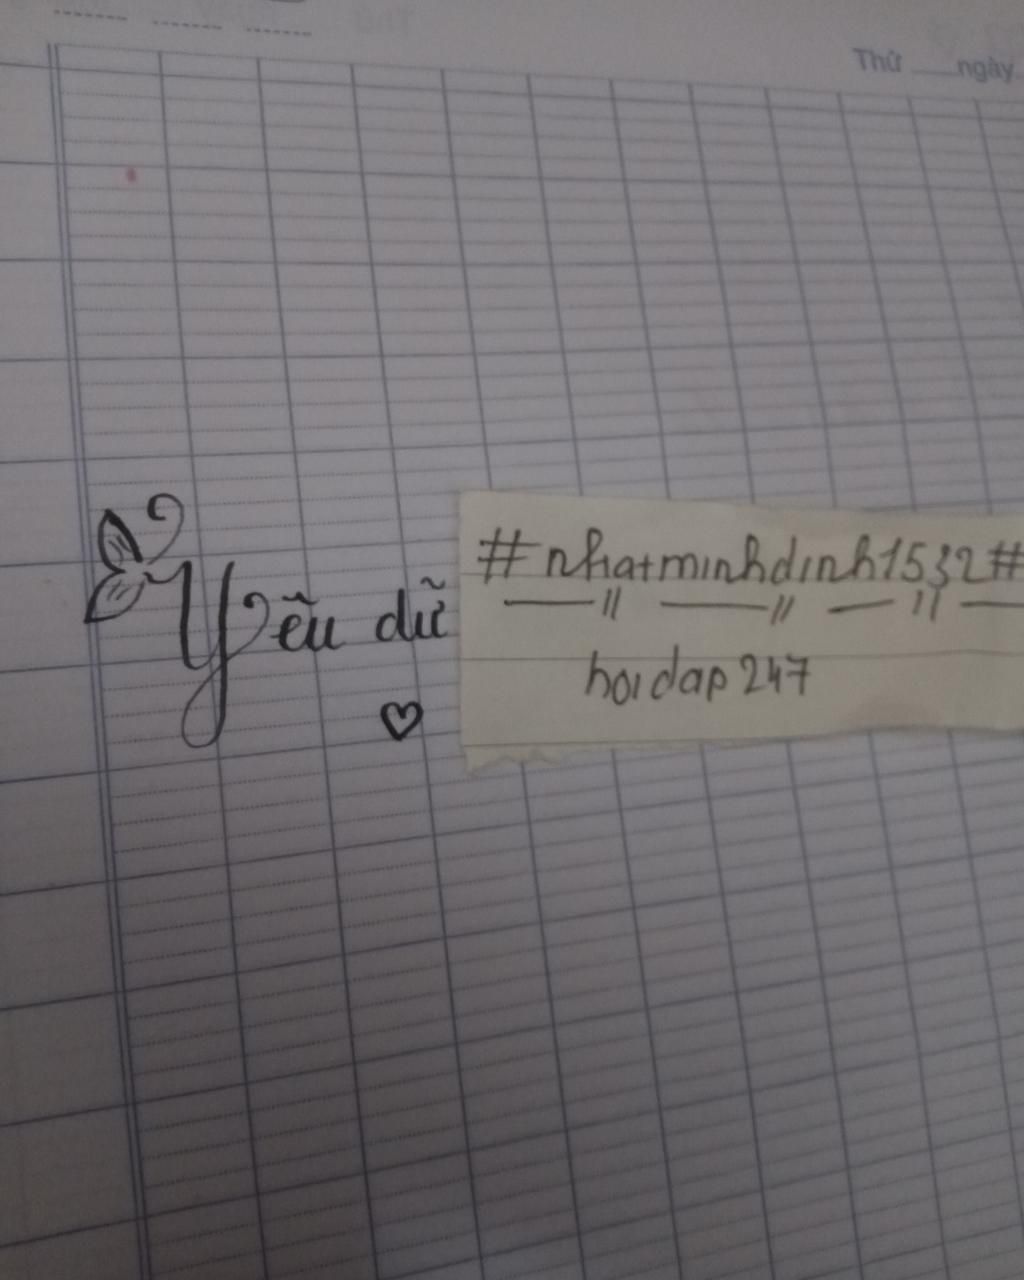 Thứ ngày
Yễu dữ #nhatminhdinh1532#
hoidap247